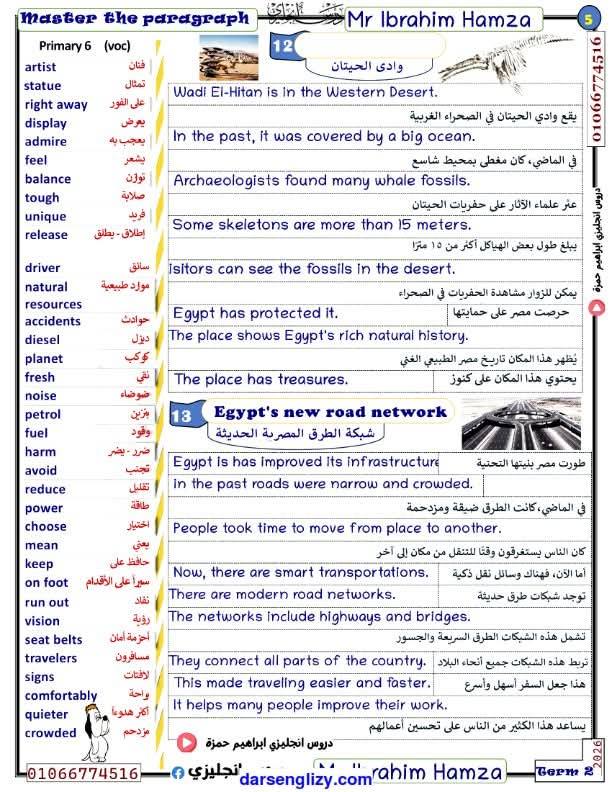 Master the paragraph
Mr Ibrahim Hamza
5
Primary 6 (voc)
artist فنان
statue تمثال
right away على الفور
display يعرض
admire يعجب به
feel يشعر
balance توازن
tough صلابة
unique فريد
release إطلاق - يطلق
driver سائق
natural resources موارد طبيعية
accidents حوادث
diesel ديزل
planet كوكب
fresh نقي
noise ضوضاء
petrol بنزين
fuel وقود
harm ضرر - يضر
avoid تجنب
reduce تقليل
power طاقة
choose اختيار
mean يعني
keep حافظ على
on foot سيرا على الأقدام
run out نفاد
vision رؤية
seat belts أحزمة أمان
travelers مسافرون
signs لافتات
comfortably براحة
quieter أكثر هدوءا
crowded مزدحم
12
وادى الحيتان
Wadi El-Hitan is in the Western Desert.
يقع وادي الحيتان في الصحراء الغربية
In the past, it was covered by a big ocean.
في الماضي، كان مغطى بمحيط شاسع
Archaeologists found many whale fossils.
عثر علماء الآثار على حفريات الحيتان
Some skeletons are more than 15 meters.
يبلغ طول بعض الهياكل أكثر من ١٥ مترًا
isitors can see the fossils in the desert.
يمكن للزوار مشاهدة الحفريات في الصحراء
Egypt has protected it. حرصت مصر على حمايتها
The place shows Egypt's rich natural history.
يُظهر هذا المكان تاريخ مصر الطبيعي الغني
The place has treasures. يحتوي هذا المكان على كنوز
13 Egypt's new road network
شبكة الطرق المصرية الحديثة
Egypt is has improved its infrastructure طورت مصر بنيتها التحتية
in the past roads were narrow and crowded.
في الماضي، كانت الطرق ضيقة ومزدحمة
People took time to move from place to another.
كان الناس يستغرقون وقتًا للتنقل من مكان إلى آخر
Now, there are smart transportations. أما الآن، فهناك وسائل نقل ذكية
There are modern road networks. توجد شبكات طرق حديثة
The networks include highways and bridges.
تشمل هذه الشبكات الطرق السريعة والجسور
They connect all parts of the country. تربط هذه الشبكات جميع أنحاء البلاد
This made traveling easier and faster. هذا جعل السفر أسهل وأسرع
It helps many people improve their work.
يساعد هذا الكثير من الناس على تحسين أعمالهم
دروس انجليزي ابراهيم حمزة
01066774516
دروس انجليزي ابراهيم حمزة
01066774516
انجليزي
Ibrahim Hamza
Term 2
2026
darsenglizy.com